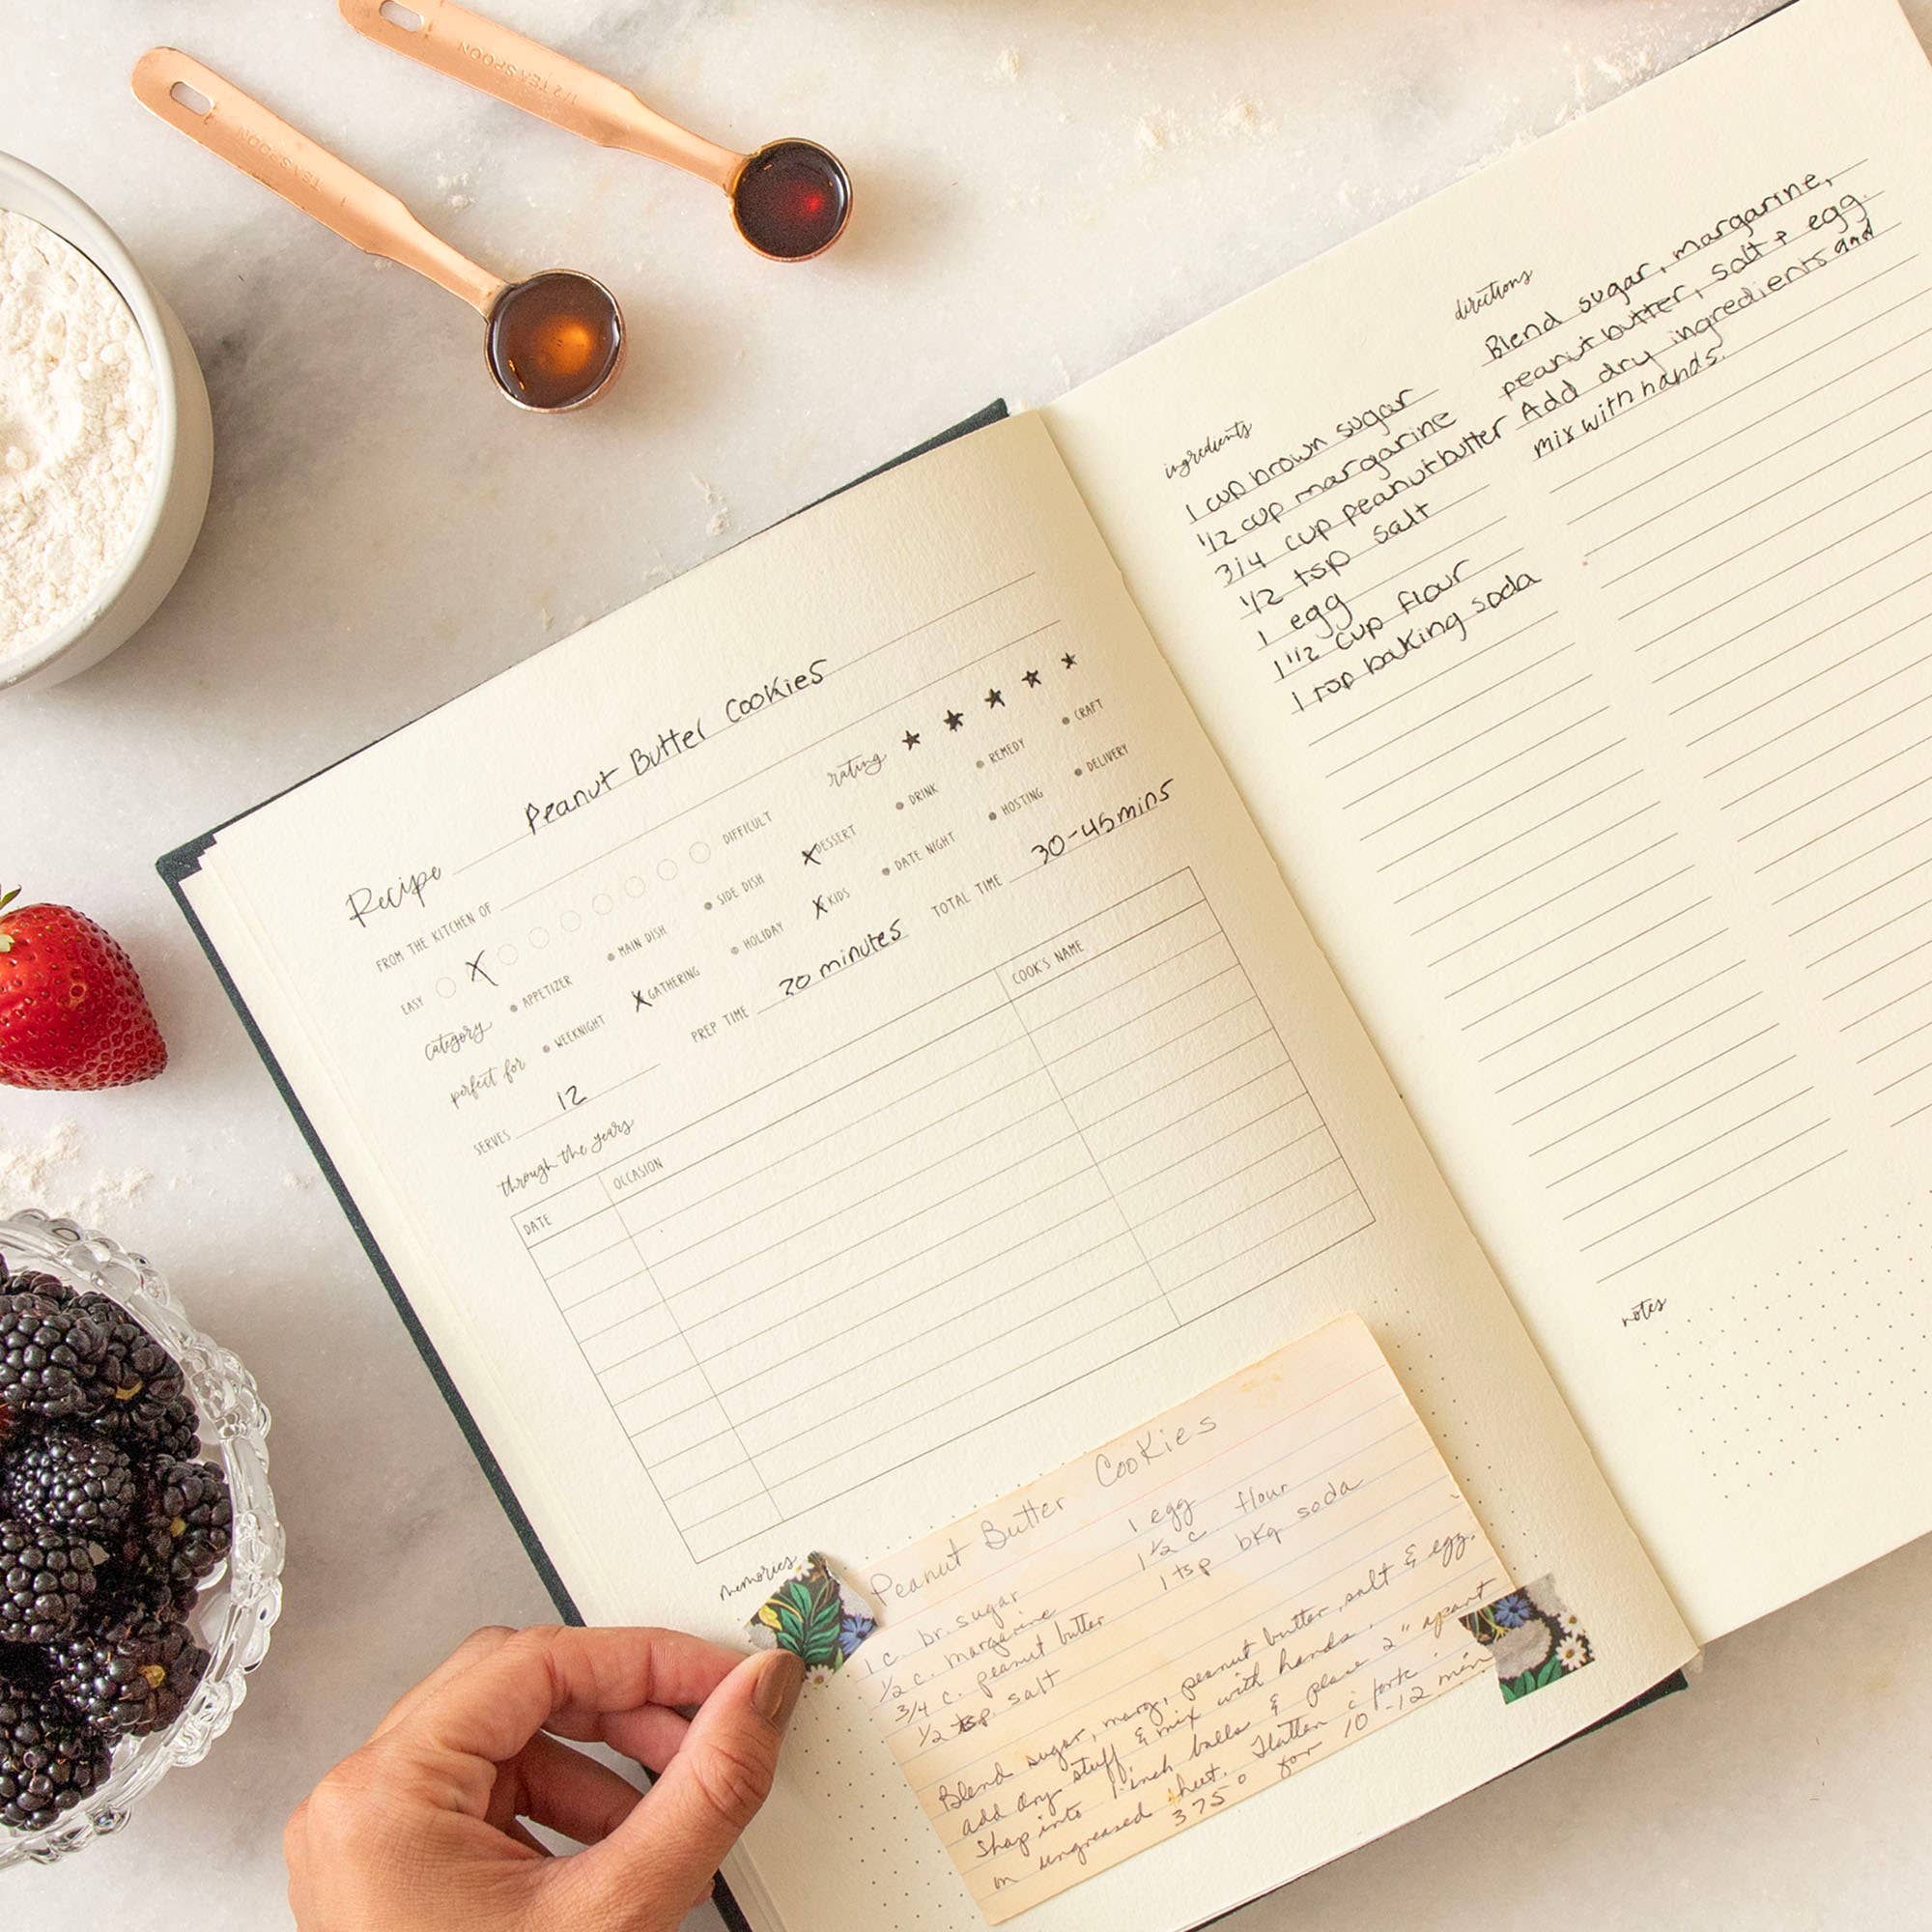 TEASPOON
1/2 TEASPOON
Recipe Peanut Butter Cookies
FROM THE KITCHEN OF
rating
EASY X DIFFICULT
category APPETIZER MAIN DISH SIDE DISH X DESSERT DRINK REMEDY CRAFT
perfect for WEEKNIGHT X GATHERING HOLIDAY X KIDS DATE NIGHT HOSTING DELIVERY
SERVES 12 PREP TIME 20 minutes TOTAL TIME 30-45mins
through the years
DATE OCCASION COOK'S NAME
memories
Peanut Butter Cookies
1 c. br. sugar
1/2 c. margarine
3/4 c. peanut butter
1/2 tsp. salt
1 egg
1 1/2 c. flour
1 tsp bkg soda
Blend sugar, marg, peanut butter, salt & egg.
add dry stuff & mix with hands.
Shap into 1-inch balls & place 2" apart
on ungreased sheet. Flatten c fork.
375° for 10-12 min
ingredients
1 cup brown sugar
1/2 cup margarine
3/4 cup peanutbutter
1/2 tsp salt
1 egg
1 1/2 cup flour
1 tsp baking soda
directions
Blend sugar, margarine,
peanut butter, salt + egg.
Add dry ingredients and
mix with hands.
notes